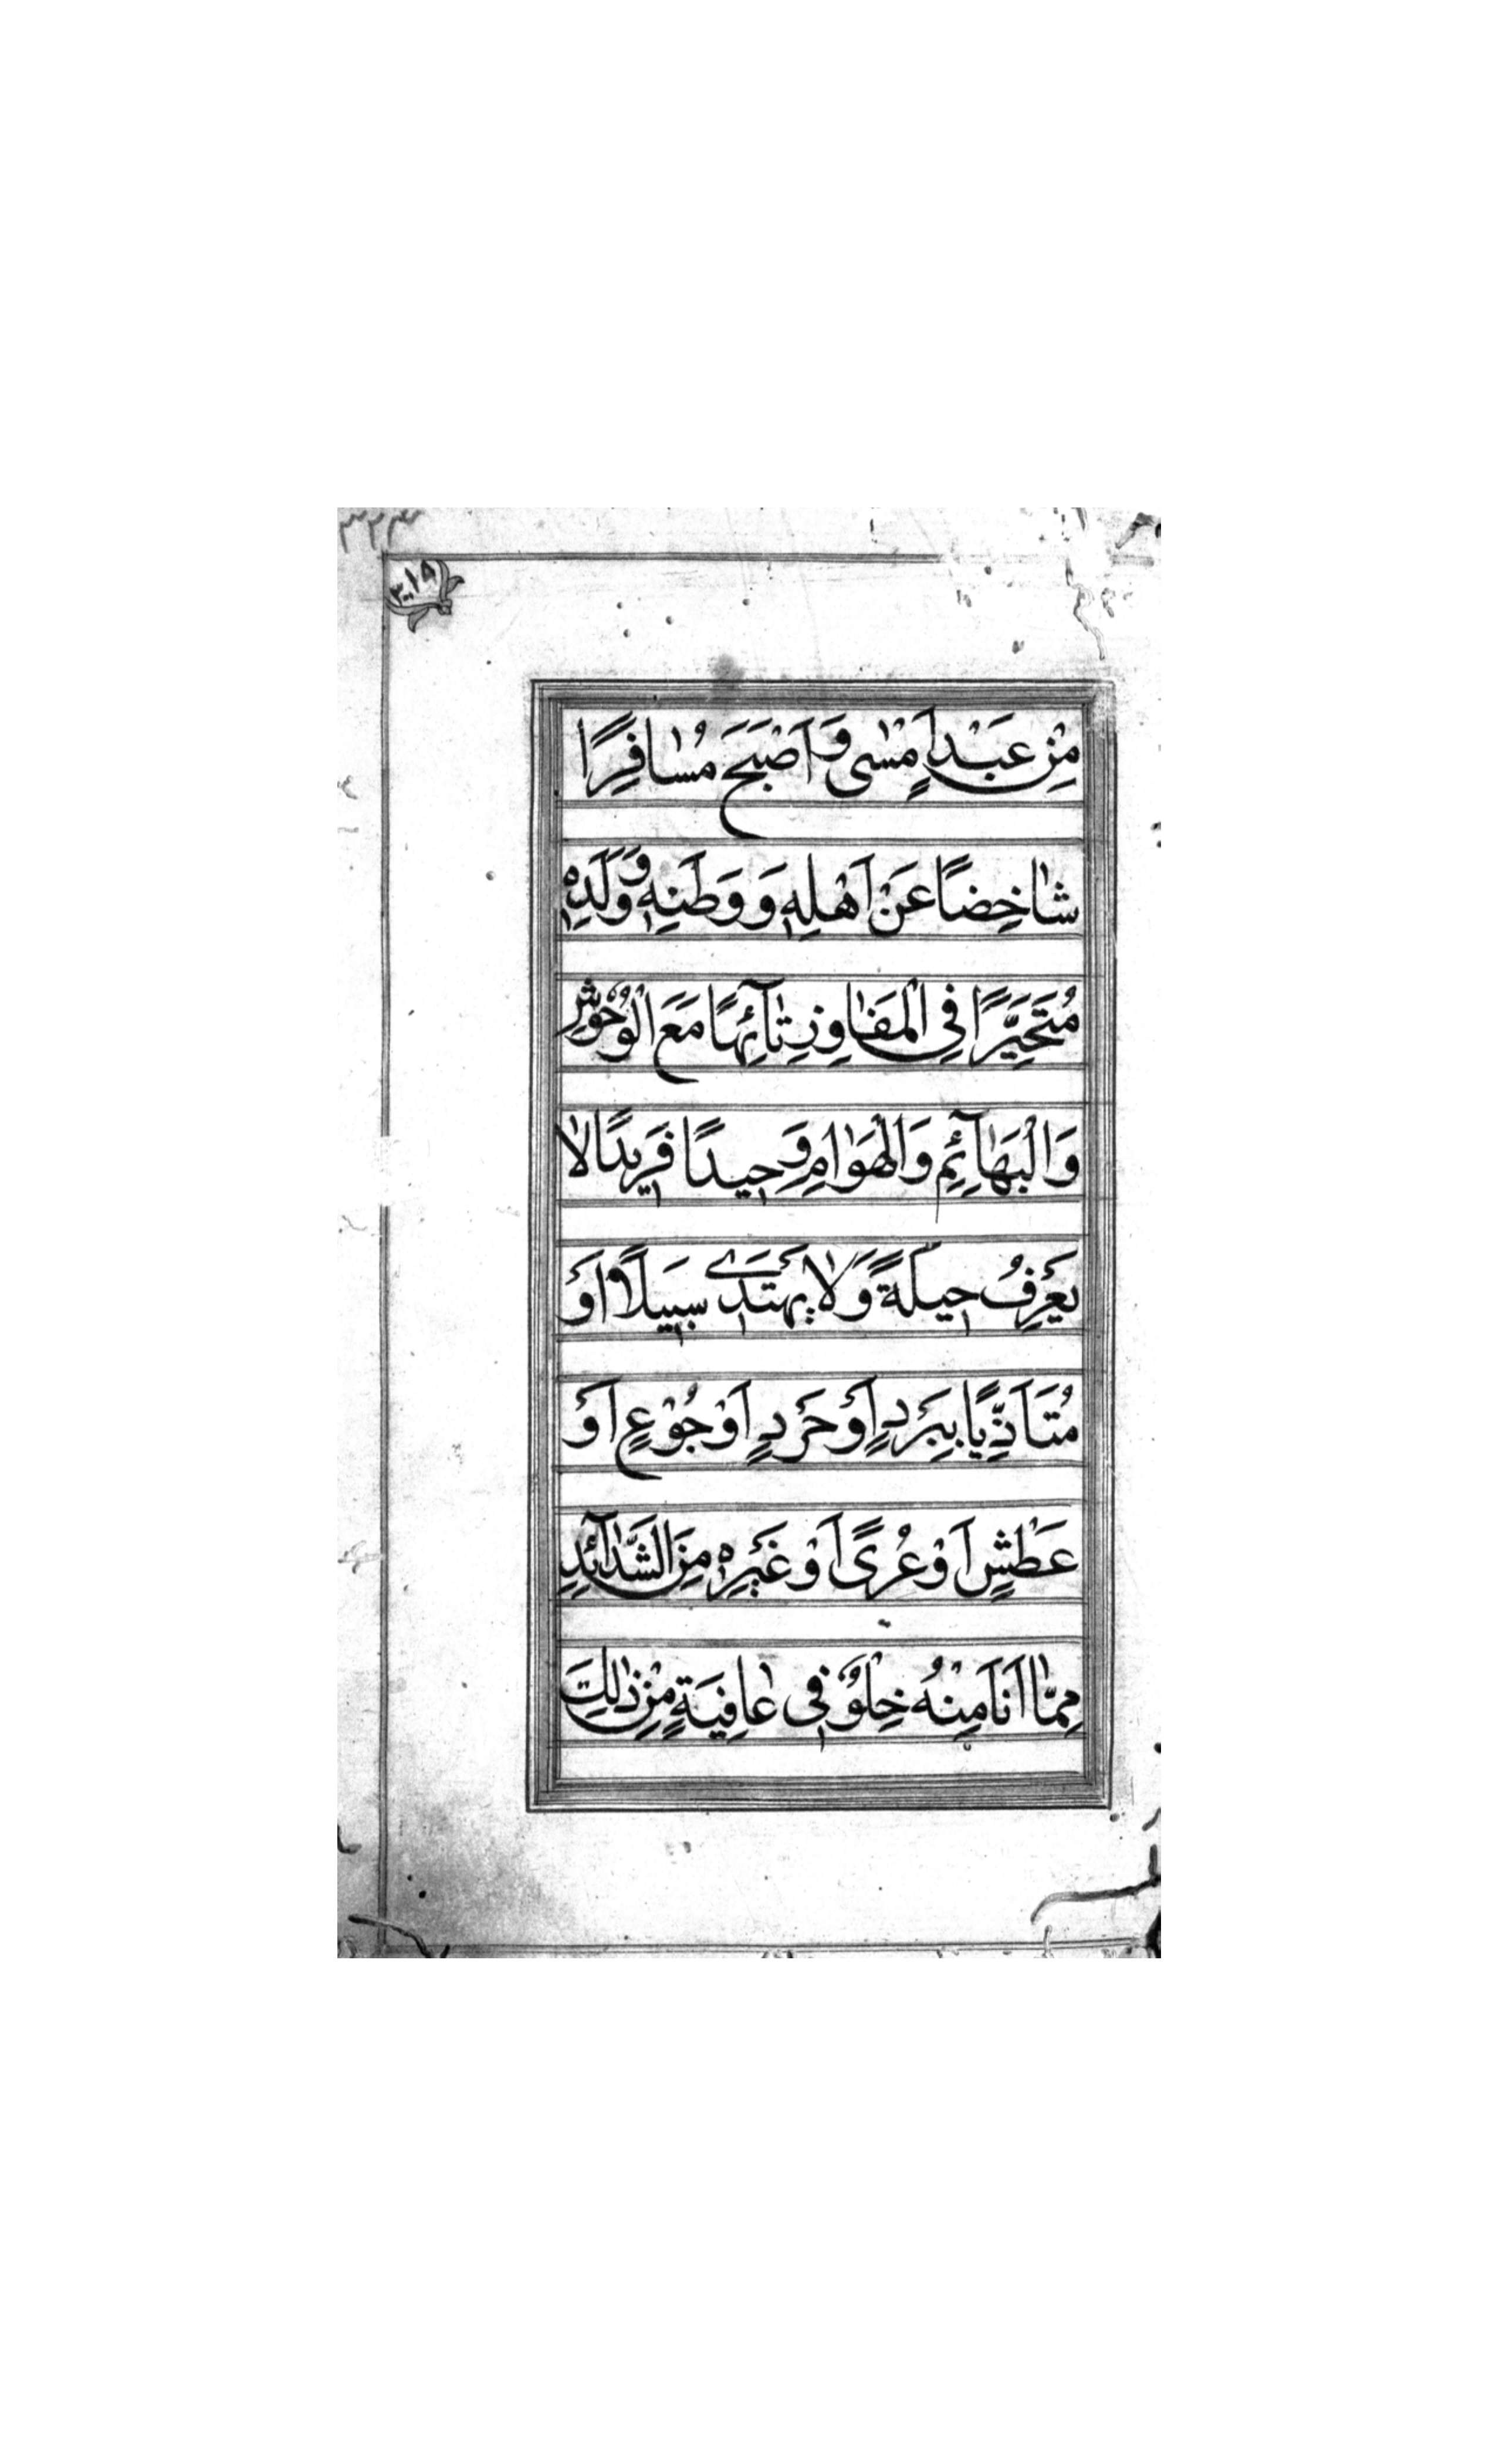 مِنْ عَبْدٍ اَمْسٰى وَ اَصْبَحَ مُسٰافِرًا
شٰاخِضًا عَنْ اَهْلِهٖ وَ وَطَنِهٖ وَ وَلَدِهٖ
مُتَحَيِّرًا فِى الْمَفٰاوِزِ تٰآئِهًا مَعَ الْوُحُوْشِ
وَ الْبَهٰآئِمِ وَ الْهَوٰامِ وَحِيدًا فَرِيدًا لٰا
يَعْرِفُ حِيلَةً وَ لٰا يَهْتَدٖى سَبِيلًا اَوْ
مُتَاَذِّيًا بِبَرْدٍ اَوْ حَرٍّ اَوْ جُوْعٍ اَوْ
عَطْشٍ اَوْ عُرًى اَوْ غَيْرِهٖ مِنَ الشَّدٰآئِدِ
مِمّٰا اَنَا مِنْهُ خِلْوٌ فِى عٰافِيَةٍ مِنْ ذٰلِكَ